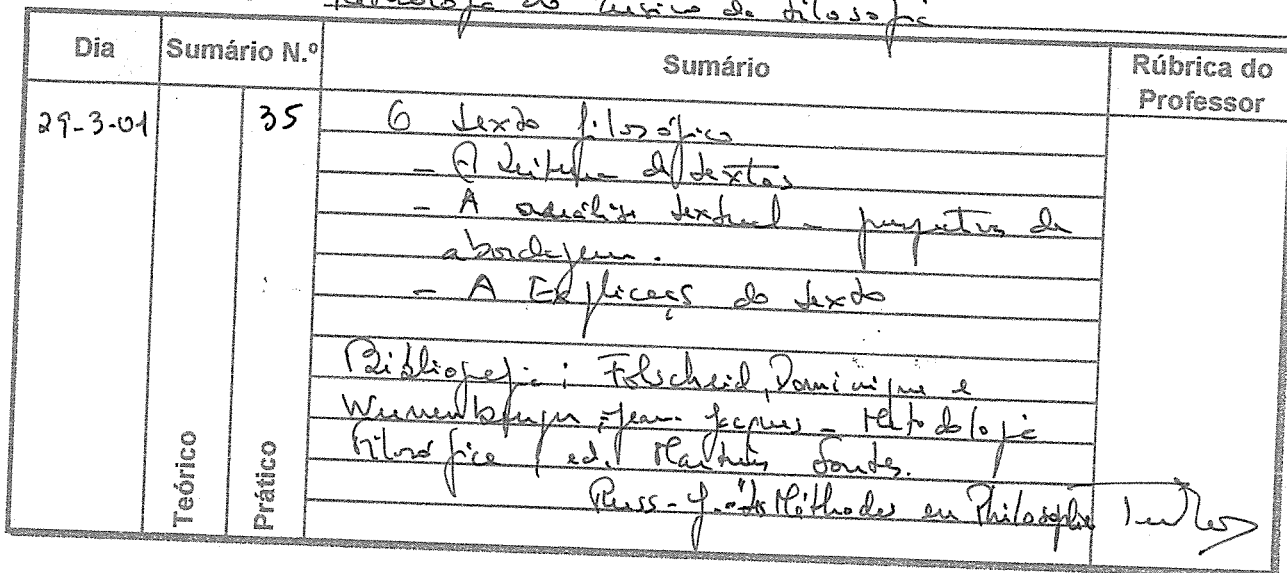 Metodologia do Ensino da Filosofia
Dia Sumário N.º Sumário Rúbrica do Professor
29-3-01 35 O texto filosófico
- A leitura de textos
- A análise textual - perspectivas de
abordagem.
- A Explicação do texto
Bibliografia: Folscheid, Dominique e
Wunenburger, Jean-Jacques - Metodologia
Filosófica, ed. Martins Fontes.
Russ - J. "Les Méthodes en Philosophie
Teórico
Prático